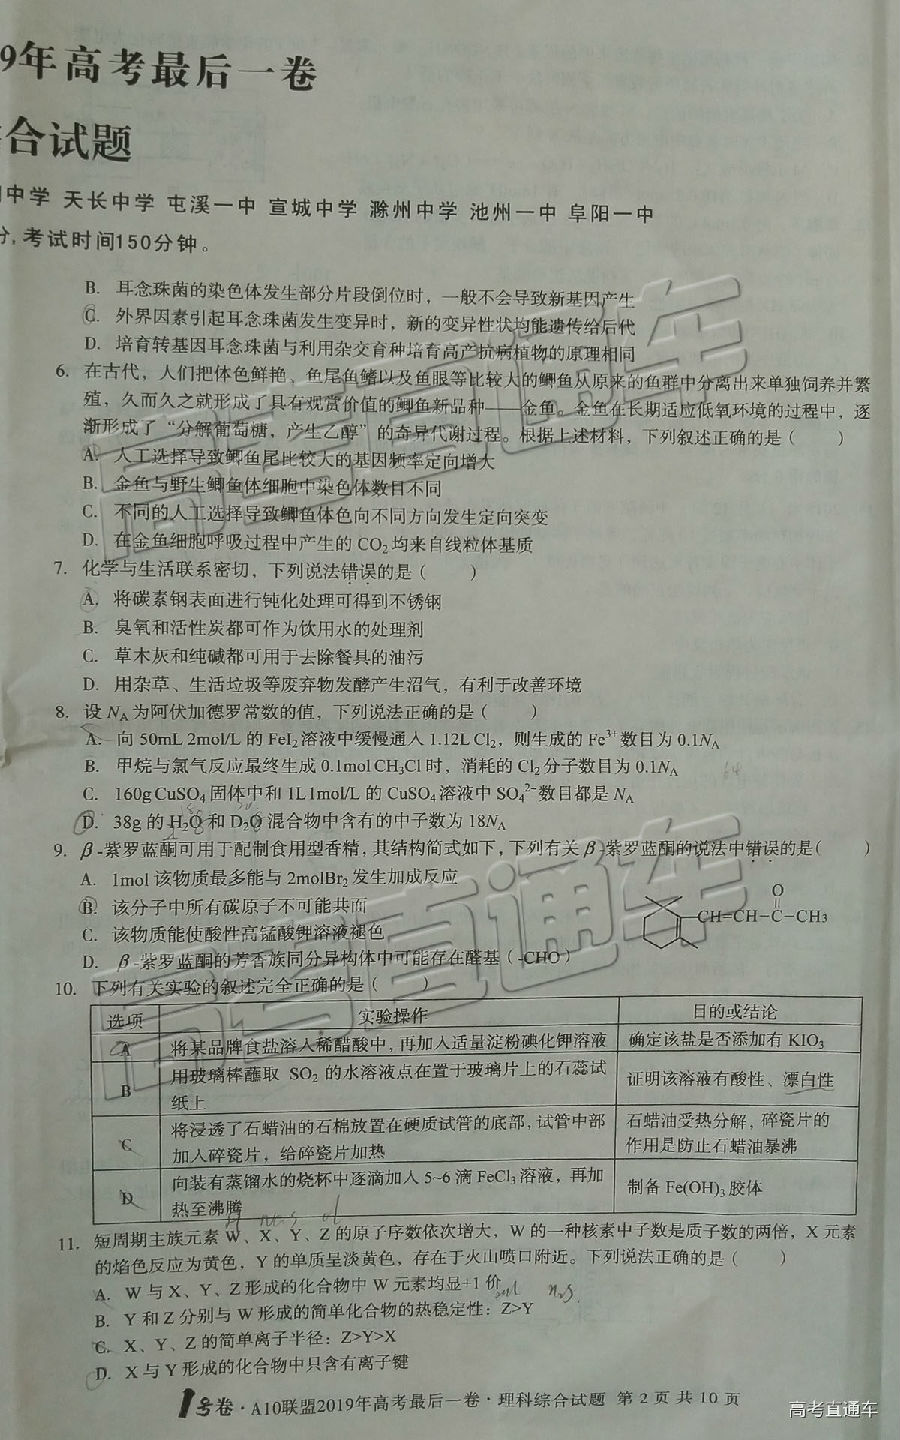 9年高考最后一卷
合试题
中学 天长中学 屯溪一中 宣城中学 滁州中学 池州一中 阜阳一中
分,考试时间150分钟。
B. 耳念珠菌的染色体发生部分片段倒位时，一般不会导致新基因产生
C. 外界因素引起耳念珠菌发生变异时，新的变异性状均能遗传给后代
D. 培育转基因耳念珠菌与利用杂交育种培育高产抗病植物的原理相同
6. 在古代，人们把体色鲜艳、鱼尾鱼鳍以及鱼眼等比较大的鲫鱼从原来的鱼群中分离出来单独饲养并繁
殖，久而久之就形成了具有观赏价值的鲫鱼新品种——金鱼。金鱼在长期适应低氧环境的过程中，逐
渐形成了“分解葡萄糖，产生乙醇”的奇异代谢过程。根据上述材料，下列叙述正确的是（　　）
A. 人工选择导致鲫鱼尾比较大的基因频率定向增大
B. 金鱼与野生鲫鱼体细胞中染色体数目不同
C. 不同的人工选择导致鲫鱼体色向不同方向发生定向突变
D. 在金鱼细胞呼吸过程中产生的 CO₂ 均来自线粒体基质
7. 化学与生活联系密切，下列说法错误的是（　　）
A. 将碳素钢表面进行钝化处理可得到不锈钢
B. 臭氧和活性炭都可作为饮用水的处理剂
C. 草木灰和纯碱都可用于去除餐具的油污
D. 用杂草、生活垃圾等废弃物发酵产生沼气，有利于改善环境
8. 设 Nᴀ 为阿伏加德罗常数的值，下列说法正确的是（　　）
A. 向 50mL 2mol/L 的 FeI₂ 溶液中缓慢通入 1.12L Cl₂，则生成的 Fe³⁺ 数目为 0.1Nᴀ
B. 甲烷与氯气反应最终生成 0.1mol CH₃Cl 时，消耗的 Cl₂ 分子数目为 0.1Nᴀ
C. 160g CuSO₄ 固体中和 1L 1mol/L 的 CuSO₄ 溶液中 SO₄²⁻ 数目都是 Nᴀ
D. 38g 的 H₂O 和 D₂O 混合物中含有的中子数为 18Nᴀ
9. β-紫罗蓝酮可用于配制食用型香精，其结构简式如下，下列有关 β-紫罗蓝酮的说法中错误的是（　　）
A. 1mol 该物质最多能与 2molBr₂ 发生加成反应
B. 该分子中所有碳原子不可能共面
C. 该物质能使酸性高锰酸钾溶液褪色
D. β-紫罗蓝酮的芳香族同分异构体中可能存在醛基（-CHO）
O
CH=CH-C-CH3
10. 下列有关实验的叙述完全正确的是（　　）
选项 实验操作 目的或结论
A 将某品牌食盐溶入稀醋酸中，再加入适量淀粉碘化钾溶液 确定该盐是否添加有 KIO₃
B 用玻璃棒蘸取 SO₂ 的水溶液点在置于玻璃片上的石蕊试
纸上 证明该溶液有酸性、漂白性
C 将浸透了石蜡油的石棉放置在硬质试管的底部，试管中部
加入碎瓷片，给碎瓷片加热 石蜡油受热分解，碎瓷片的
作用是防止石蜡油暴沸
D 向装有蒸馏水的烧杯中逐滴加入 5~6 滴 FeCl₃ 溶液，再加
热至沸腾 制备 Fe(OH)₃ 胶体
11. 短周期主族元素 W、X、Y、Z 的原子序数依次增大，W 的一种核素中子数是质子数的两倍，X 元素
的焰色反应为黄色，Y 的单质呈淡黄色，存在于火山喷口附近。下列说法正确的是（　　）
A. W 与 X、Y、Z 形成的化合物中 W 元素均显+1 价
B. Y 和 Z 分别与 W 形成的简单化合物的热稳定性：Z>Y
C. X、Y、Z 的简单离子半径：Z>Y>X
D. X 与 Y 形成的化合物中只含有离子键
1号卷·A10联盟2019年高考最后一卷·理科综合试题 第 2 页 共 10 页
高考直通车
高考直通车
高考直通车